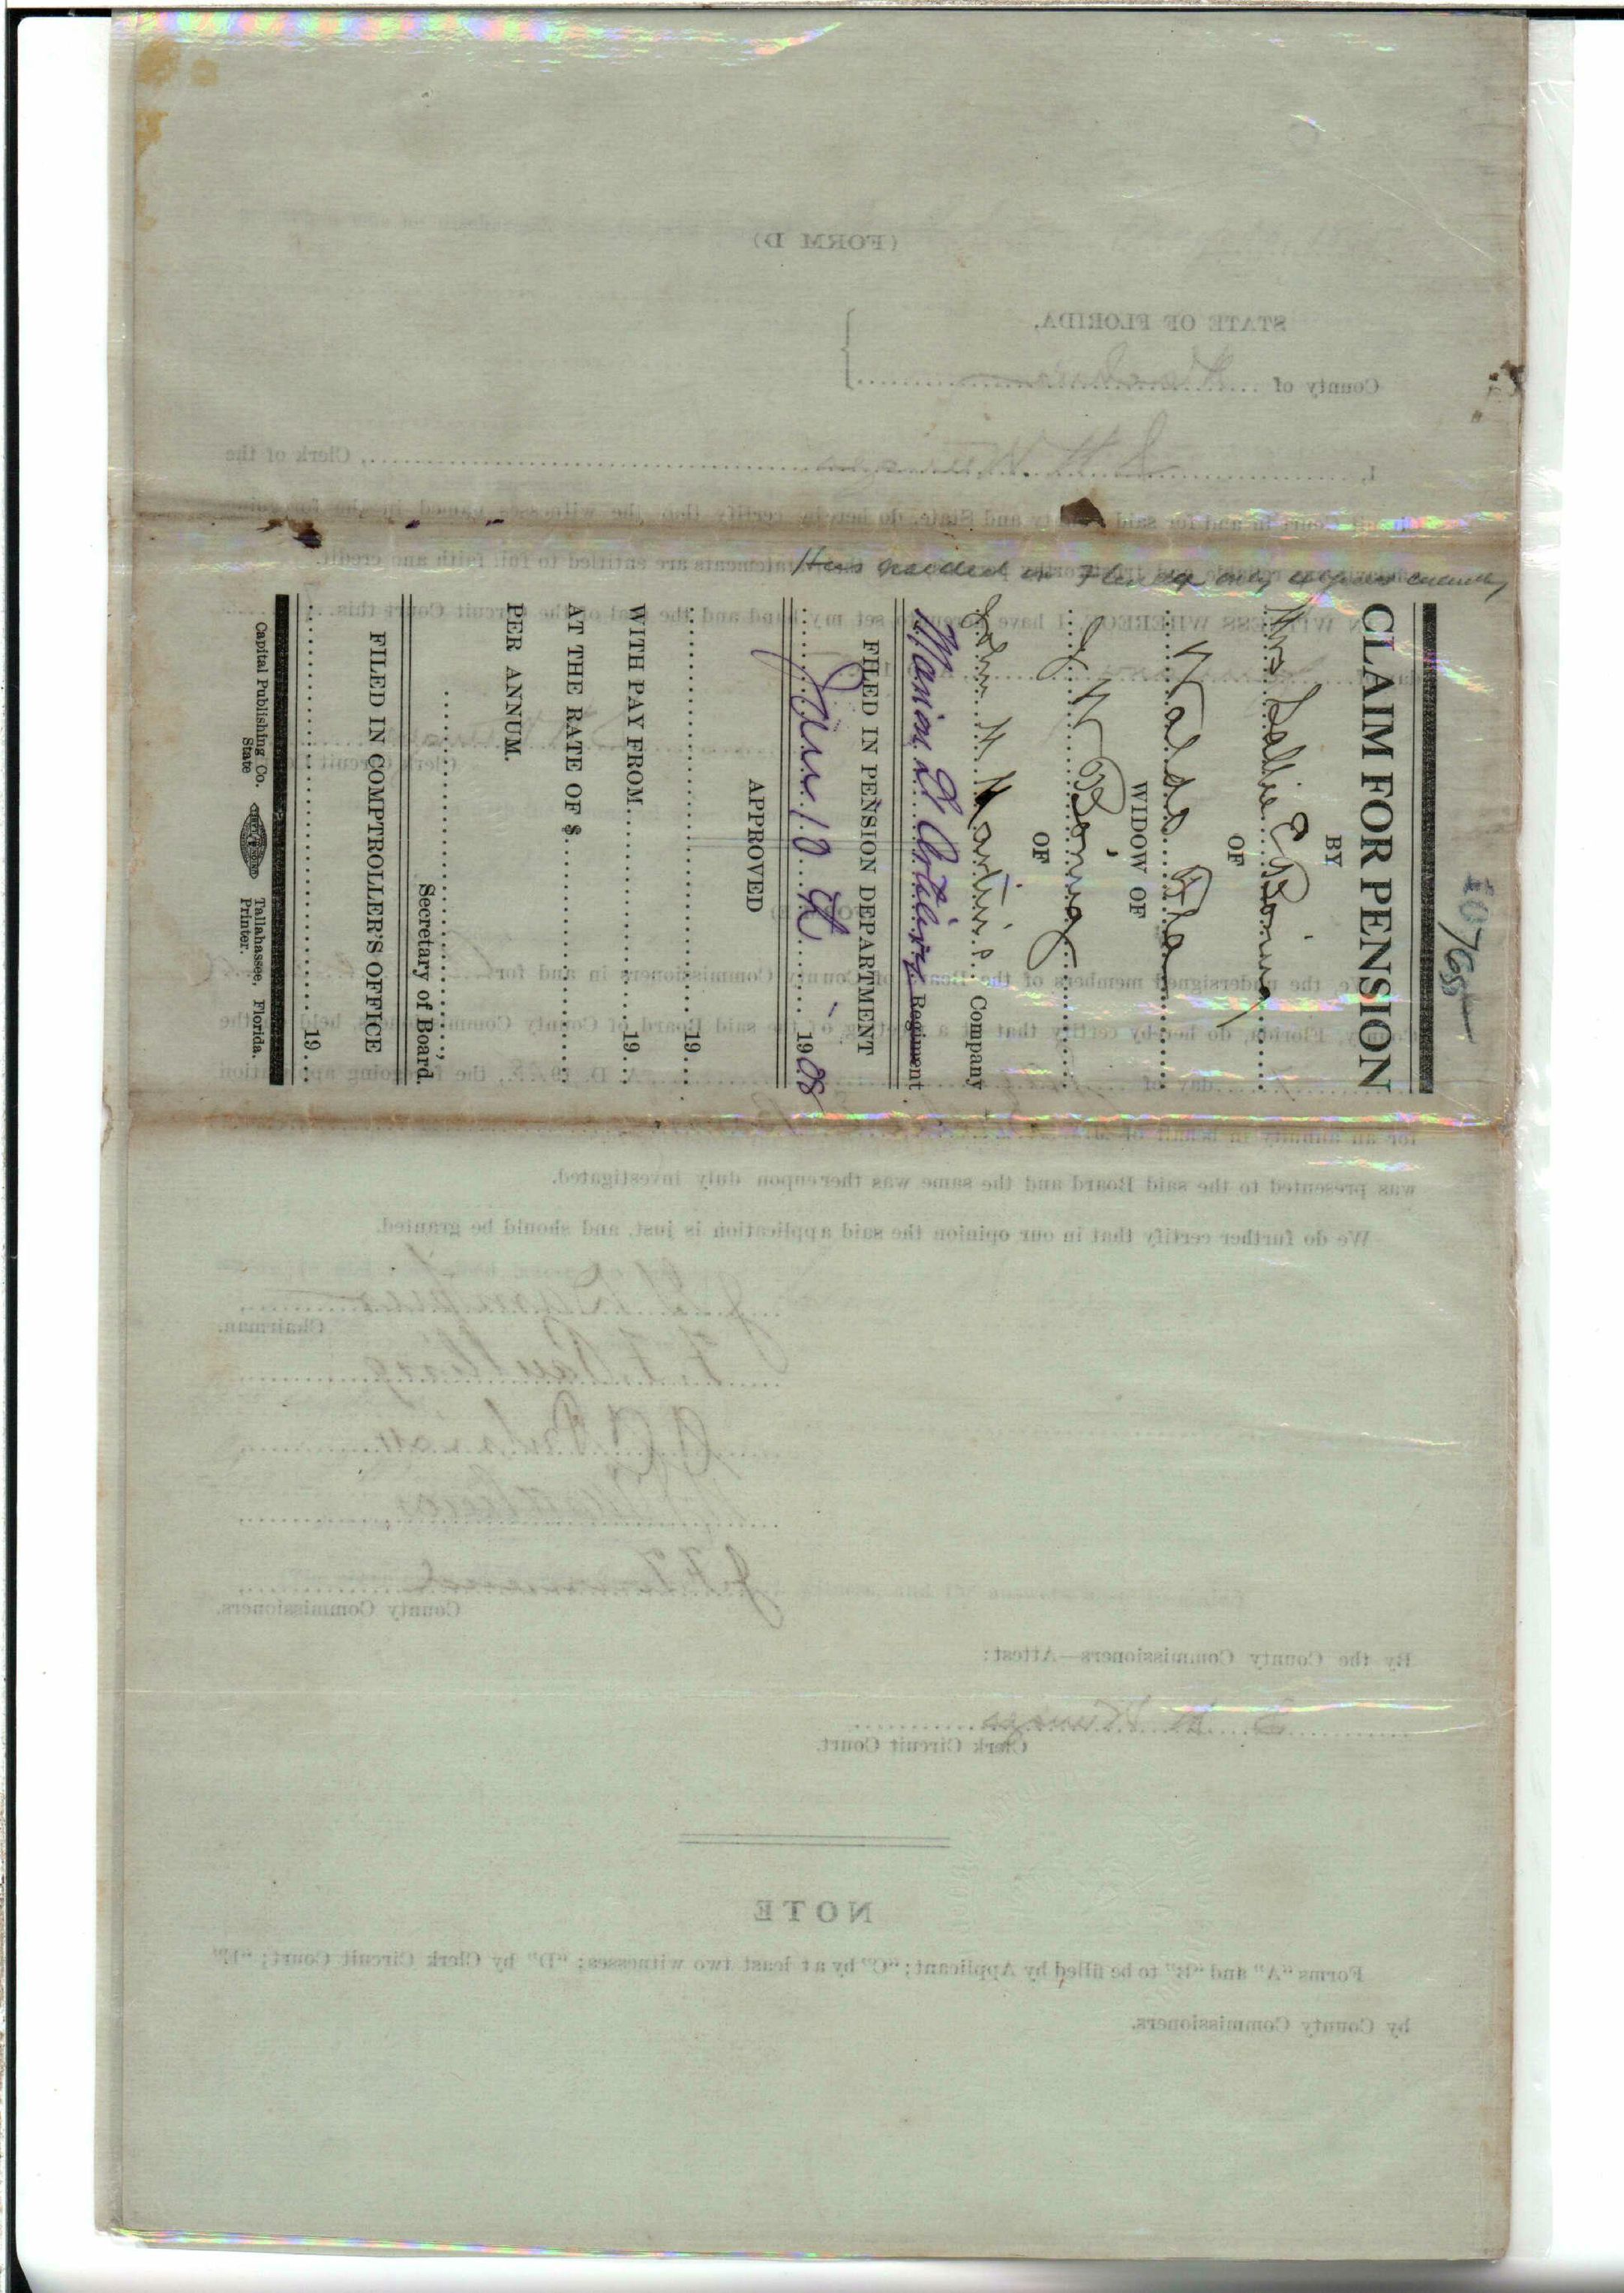 10768
CLAIM FOR PENSION
BY
Mrs Sallie E Boring
OF
Waldo Fla
WIDOW OF
J W Boring
OF
John M Martin Company
Marion Lt Artillery Regiment
FILED IN PENSION DEPARTMENT
Jan 10th 1908
APPROVED
19
WITH PAY FROM 19
AT THE RATE OF $
PER ANNUM.
Secretary of Board.
FILED IN COMPTROLLER'S OFFICE
19
Capital Publishing Co. Tallahassee, Florida.
State Printer.
Has resided in Florida only
(FORM D)
STATE OF FLORIDA,
County of
I, , Clerk of the
Circuit Court in and for said County and State, do hereby certify that the witnesses named in the foregoing
statements are entitled to full faith and credit.
IN WITNESS WHEREOF, I have hereunto set my hand and the seal of the Circuit Court this
Clerk Circuit
We, the undersigned members of the Board of County Commissioners in and for
County, Florida, do hereby certify that at a meeting of the said Board of County Commissioners, held the
day of A. D. 19 , the foregoing application
for an annuity in behalf of
was presented to the said Board and the same was thereupon duly investigated.
We do further certify that in our opinion the said application is just, and should be granted.
Chairman.
County Commissioners.
By the County Commissioners—Attest:
Clerk Circuit Court.
NOTE
Forms "A" and "B" to be filled by Applicant; "C" by at least two witnesses; "D" by Clerk Circuit Court; "E"
by County Commissioners.